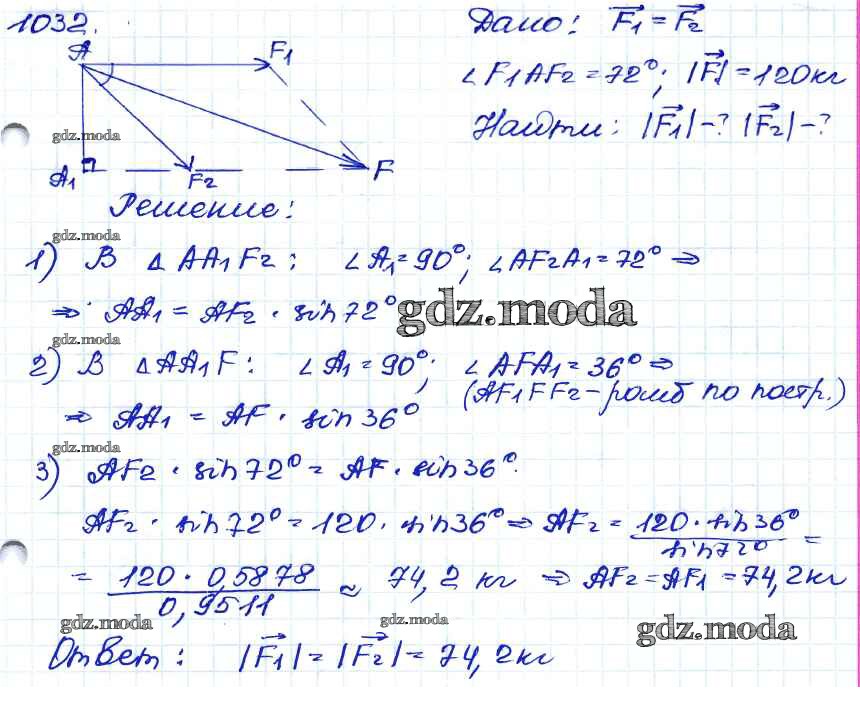 1032.
Дано: F₁ = F₂
∠F₁AF₂ = 72°; |F| = 120 кг
Найти: |F₁| - ? |F₂| - ?
A
F₁
gdz.moda
A₁
F₂
F
Решение:
gdz.moda
1) В △AA₁F₂: ∠A₁ = 90°; ∠AF₂A₁ = 72° ⇒
⇒ AA₁ = AF₂ · sin 72°
gdz.moda
gdz.moda
2) В △AA₁F: ∠A₁ = 90°; ∠AFA₁ = 36° ⇒
(AF₁FF₂ - ромб по постр.)
⇒ AA₁ = AF · sin 36°
gdz.moda
3) AF₂ · sin 72° = AF · sin 36°.
AF₂ · sin 72° = 120 · sin 36° ⇒ AF₂ = 120 · sin 36° / sin 72° =
= 120 · 0,5878 / 0,9511 ≈ 74,2 кг ⇒ AF₂ = AF₁ = 74,2 кг
gdz.moda
gdz.moda
gdz.moda
Ответ: |F₁| = |F₂| = 74,2 кг